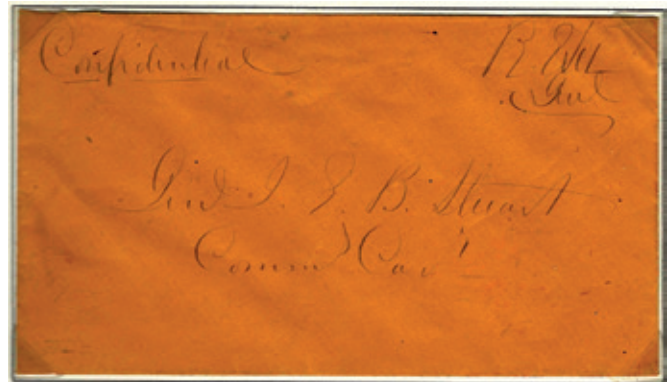 Confidential
R E Lee
Genl
Genl J. E. B. Stuart
Commdg Cavy